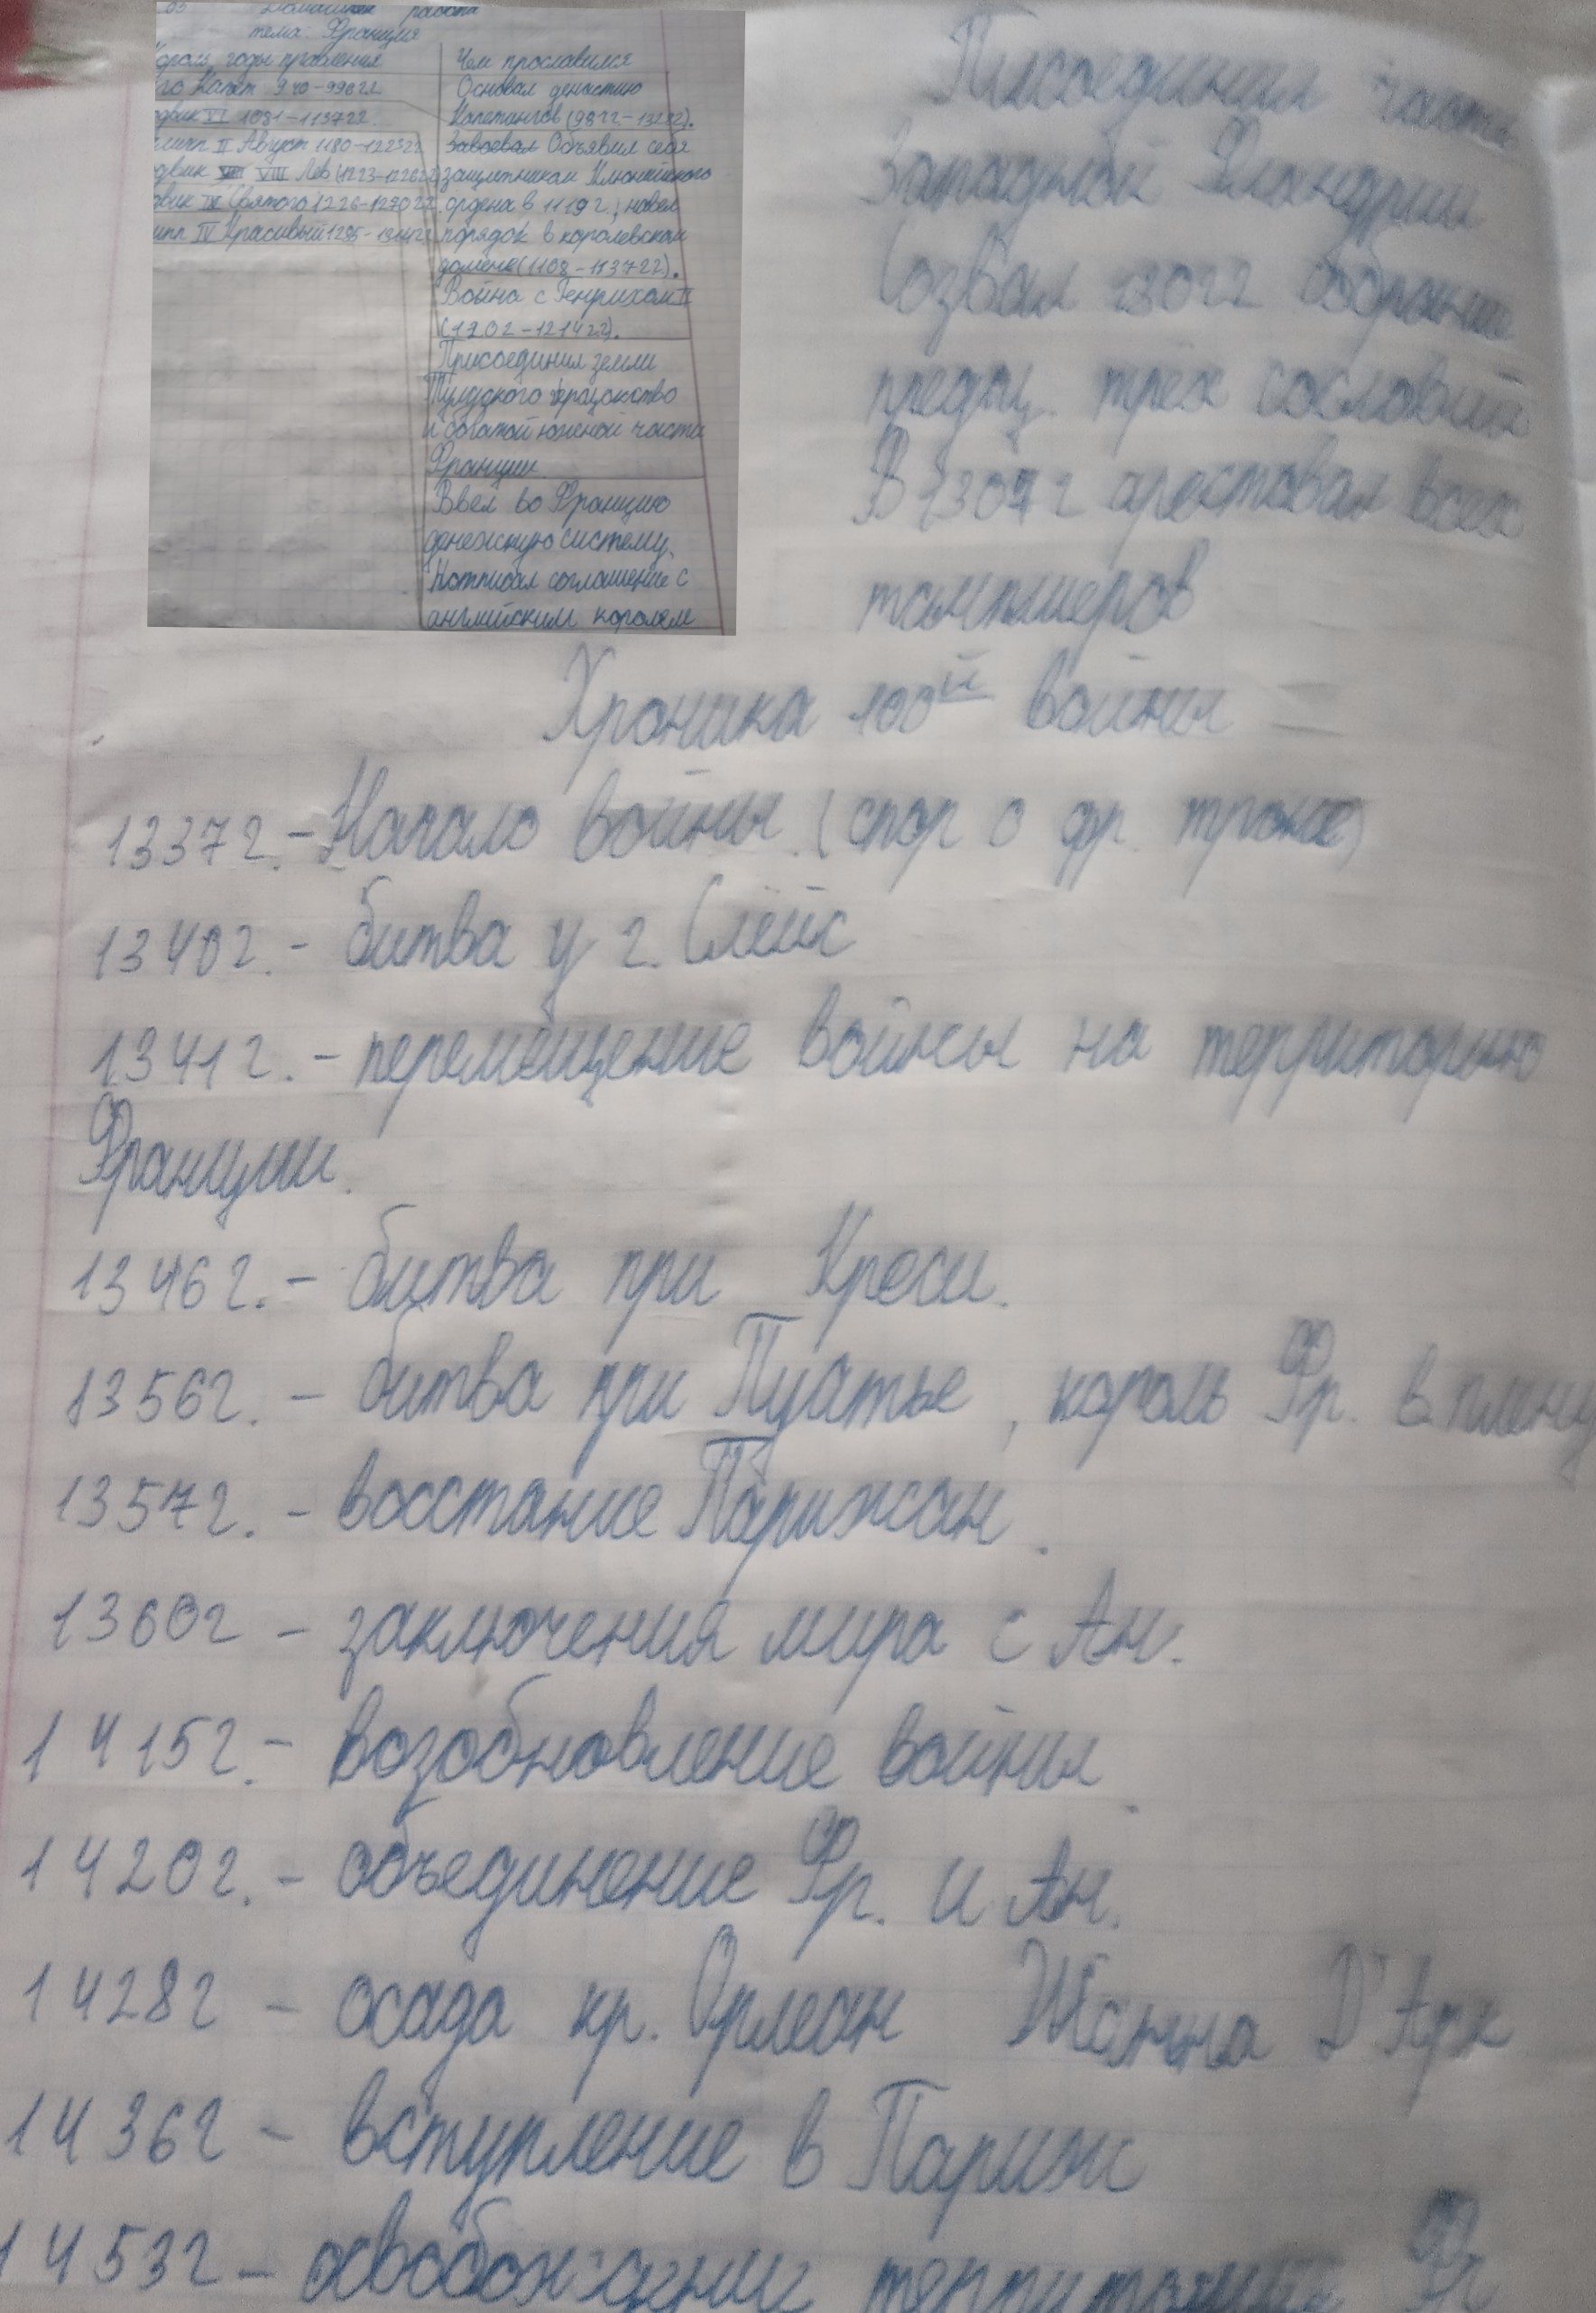 Домашняя работа
тема: Франция
Король, годы правления
Чем прославился
го Капет 940-996гг.
Основал династию
Капетингов (987г.-1328г.).
двик VI 1081-1137гг.
липп II Август 1180-1223гг.
Завоевал Объявил себя
двик VIII VIII Лев (1223-1226гг.)
защитником Клюнийского
двик IX Святого 1226-1270гг.
ордена в 1119г., навел
ипп IV Красивый 1285-1314гг.
порядок в королевском
домене (1108-1137гг).
Война с Генрихом II
(1202-1214гг).
Присоединил земли
Тулузского
и богатой южной части
Франции
Ввел во Францию
денежную систему.
соглашение с
английским королем
Писоединил часть
Западной Фландрии
Созвал 1302г собрание
предц. трёх сословий
В 1307г арестовал всех
тамплиеров
Хроника 100й войны
1337г. - Начало войны. (спор о фр. троне)
1340г. - битва у г. Слёйс
1341г. - перемещение войны на территорию
Франции.
1346г. - битва при Креси.
1356г. - битва при Пуатье, король Фр. в плену
1357г. - восстание Парижан.
1360г - заключения мира с Ан.
1415г. - возобновление войны.
1420г. - объединение Фр. и Ан.
1428г - осада кр. Орлеан Жанна Д'Арк
1436г - вступление в Париж
1453г - территории Фр